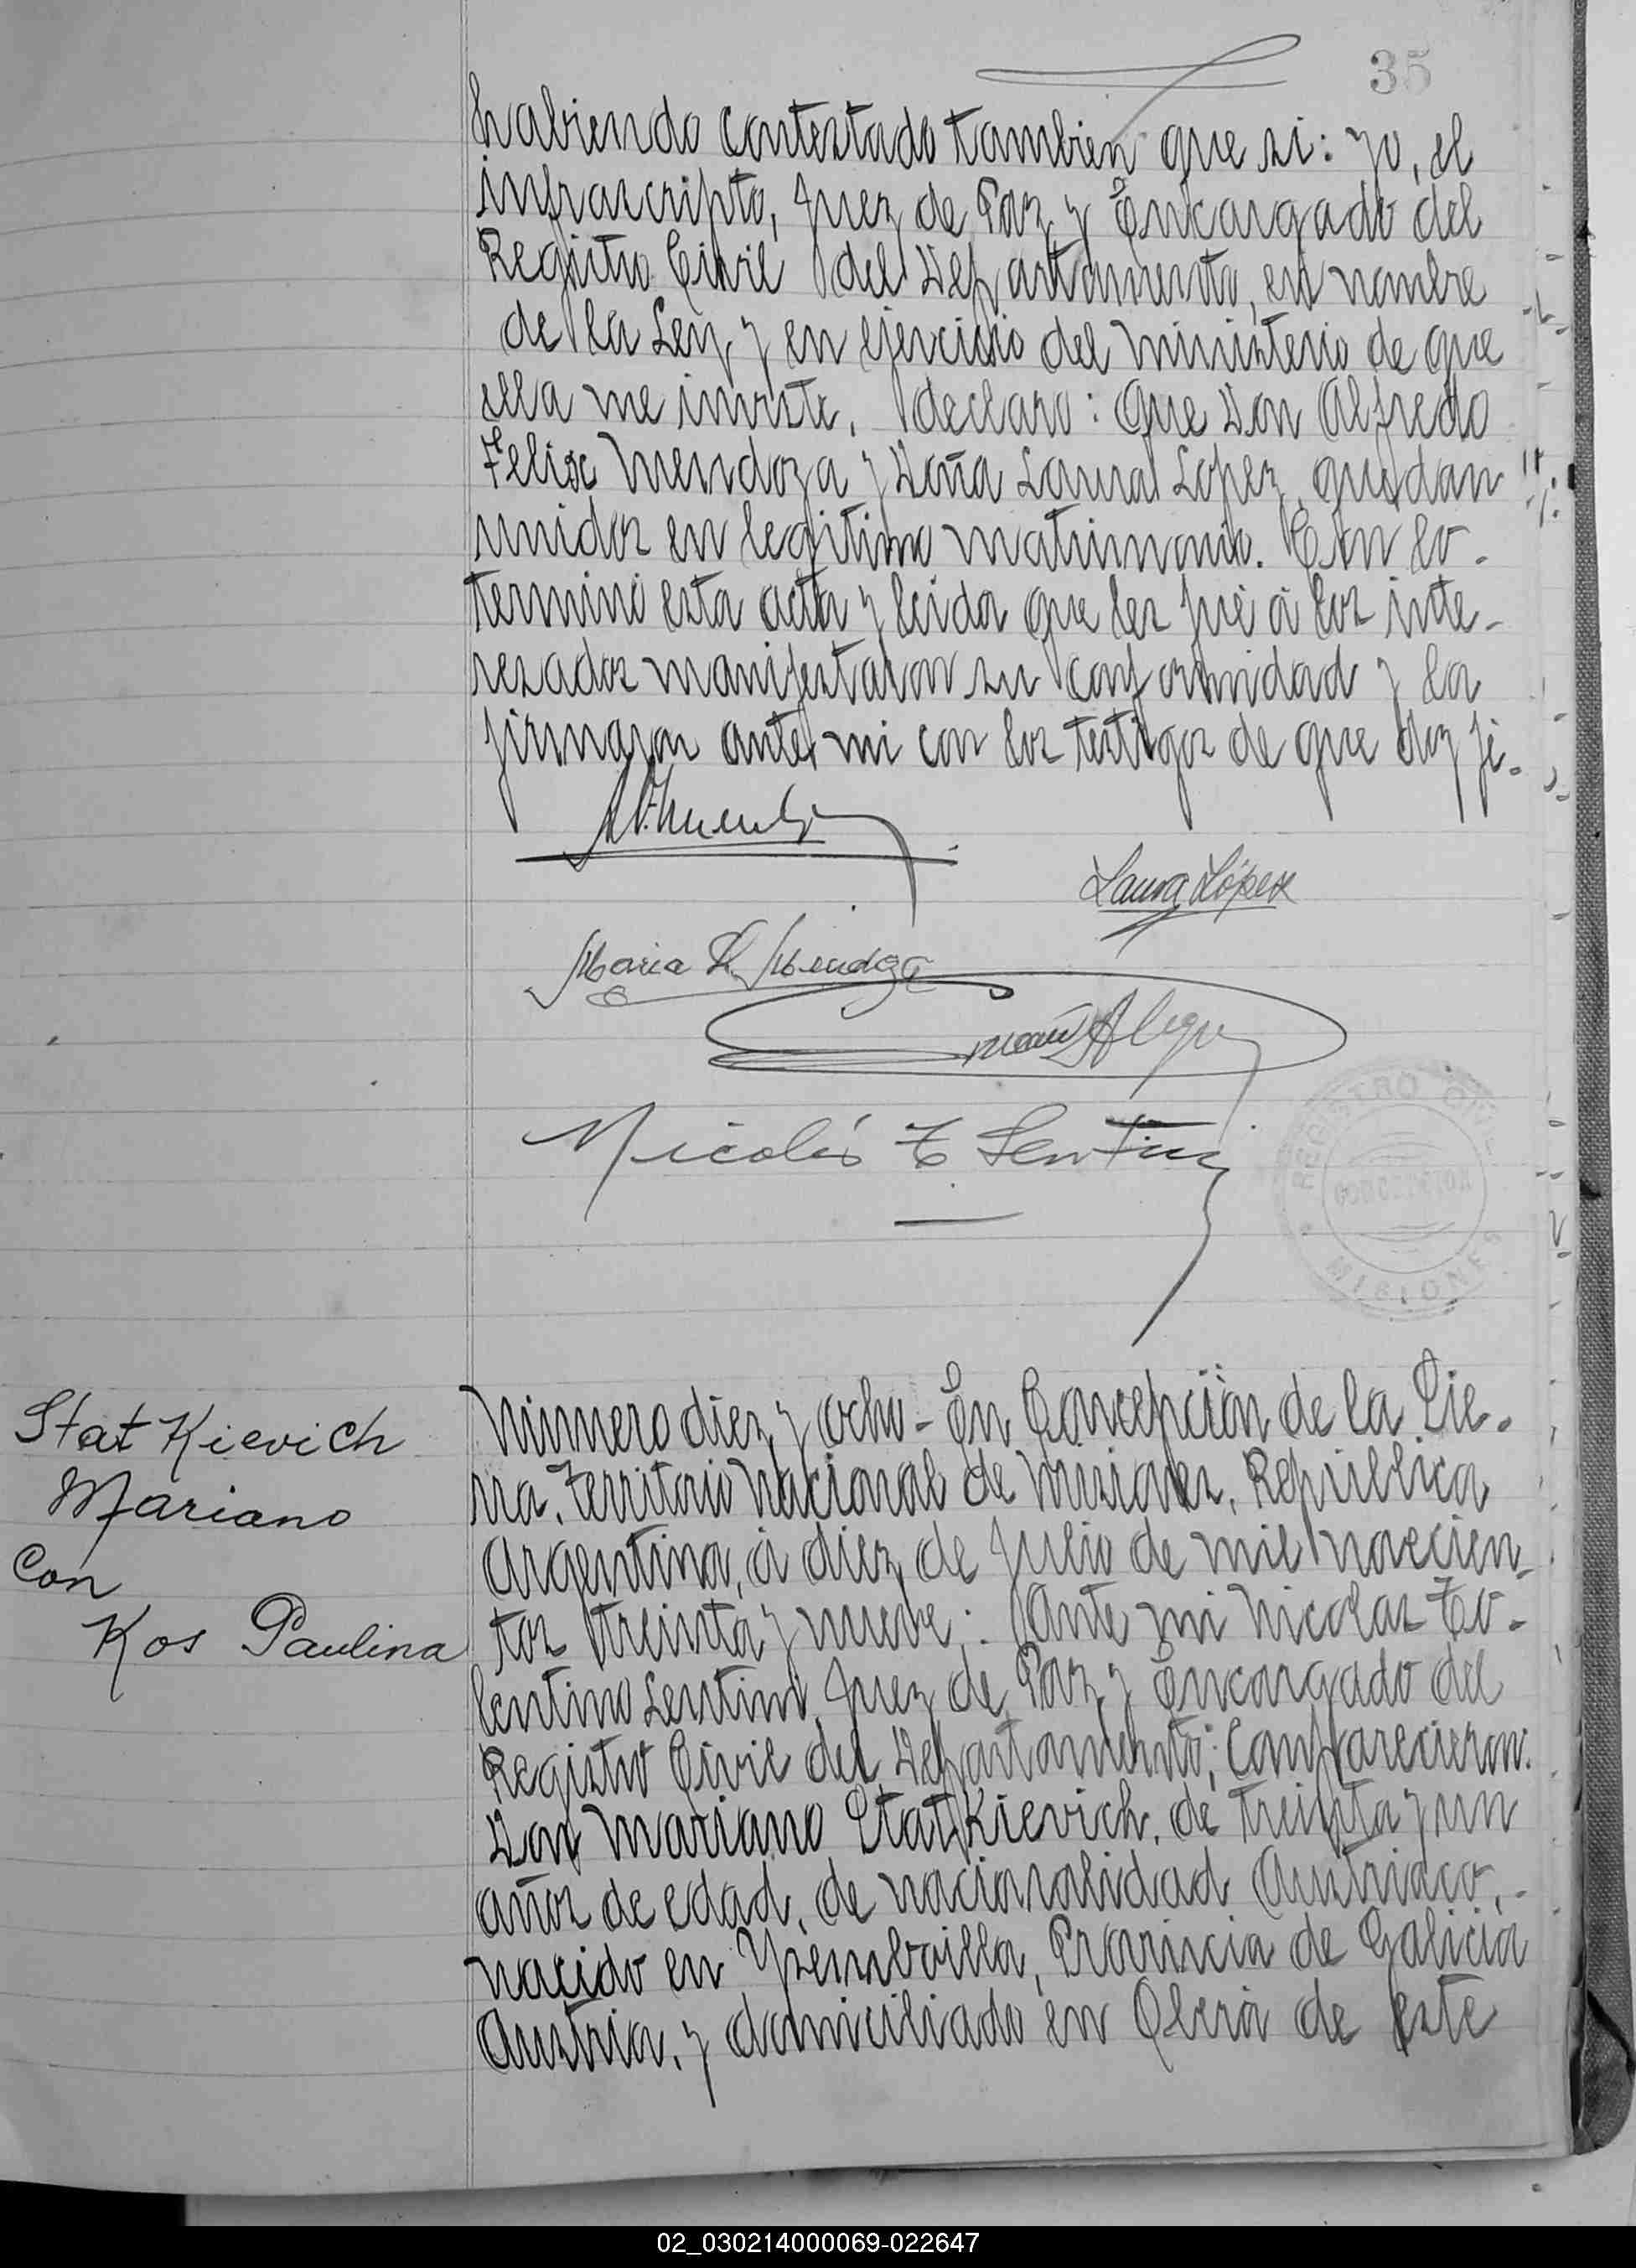 35
habiendo contestado tambien que si: yo, el
infrascripto, Juez de Paz y Encargado del
Registro Civil del Departamento, en nombre
de la Ley y en ejercicio del ministerio de que
ella me inviste, declaro: Que Don Alfredo
Felix Mendoza y Doña Laura Lopez, quedan
unidos en legitimo matrimonio. Con lo-
terminó esta acta y leida que les fué á los inte-
resados manifestaron su conformidad y la
firmaron ante mi con los testigos de que doy fé.
Laura López
Maria L. Mendoza
Nicolás T Sentini
REGISTRO CIVIL
MISIONES
Stat Kievich
Mariano
Con
Kos Paulina
Número diez y ocho - En Concepción de la Sie-
rra, Territorio Nacional de Misiones, República
Argentina, á diez de Julio de mil novecien-
tos treinta y nueve: Ante mi Nicolas To-
lentino Sentini, Juez de Paz y Encargado del
Registro Civil del Departamento; Comparecieron:
Don Mariano Stat Kievich, de treinta y un
años de edad, de nacionalidad Austriaco,-
nacido en Provincia de Galicia
Austria, y domiciliado en Oberá de este
02_030214000069-022647